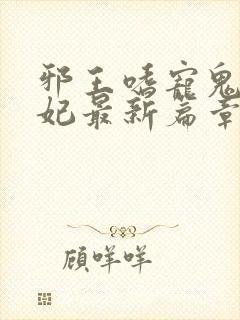 邪王嗜宠鬼
妃最新篇章
顾咩咩